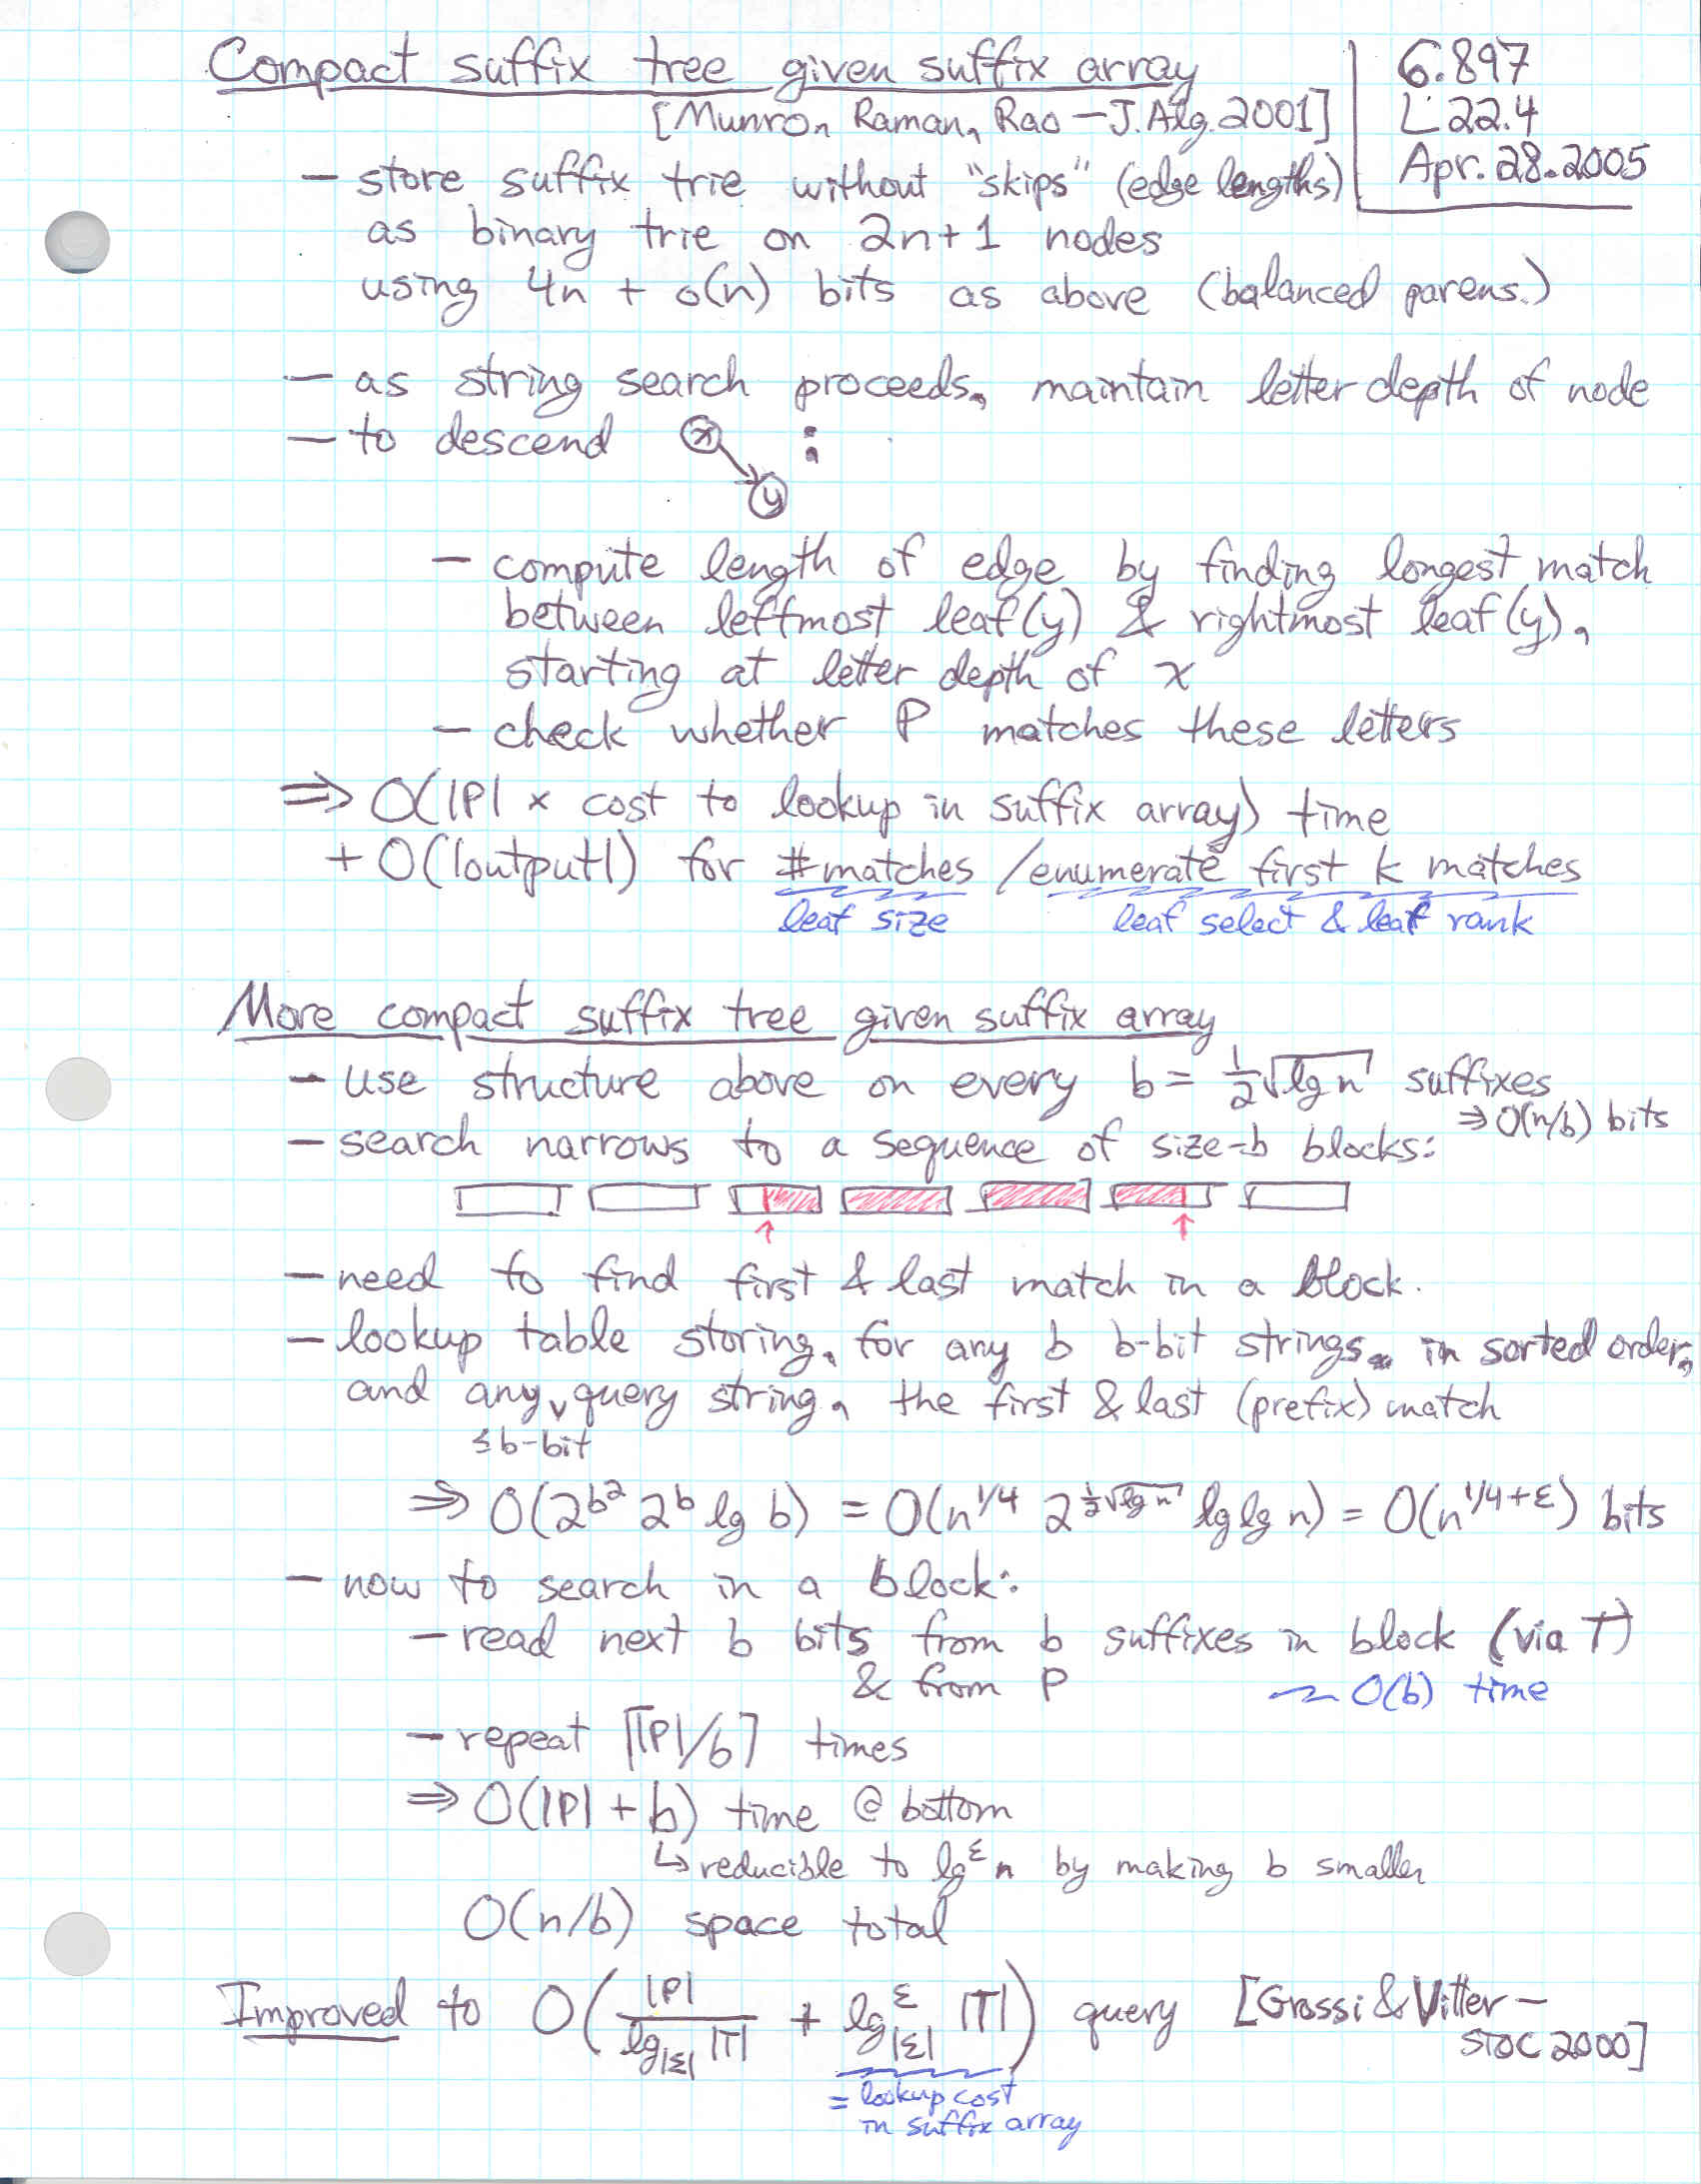 Compact suffix tree given suffix array
[Munro, Raman, Rao — J.Alg. 2001]
6.897
L 22.4
Apr. 28. 2005
— store suffix trie without "skips" (edge lengths)
as binary trie on 2n+1 nodes
using 4n + o(n) bits as above (balanced parens.)
— as string search proceeds, maintain letter depth of node
— to descend x :
y
— compute length of edge by finding longest match
between leftmost leaf(y) & rightmost leaf(y),
starting at letter depth of x
— check whether P matches these letters
⇒ O(|P| × cost to lookup in suffix array) time
+ O(|output|) for #matches / enumerate first k matches
leaf size leaf select & leaf rank
More compact suffix tree given suffix array
— use structure above on every b = ½√lg n suffixes
⇒ O(n/b) bits
— search narrows to a sequence of size-b blocks:
— need to find first & last match in a block.
— lookup table storing, for any b b-bit strings, in sorted order,
and any query string, the first & last (prefix) match
≤b-bit
⇒ O(2^b² 2^b lg b) = O(n^1/4 2^½√lg n lg lg n) = O(n^1/4+ε) bits
— now to search in a block:
— read next b bits from b suffixes in block (via T)
& from P ~ O(b) time
— repeat ⌈|P|/b⌉ times
⇒ O(|P| + b) time @ bottom
↳ reducible to lg^ε n by making b smaller
O(n/b) space total
Improved to O(|P| / lg_|Σ| |T| + lg^ε_|Σ| |T|) query [Grossi & Vitter —
STOC 2000]
= lookup cost
in suffix array